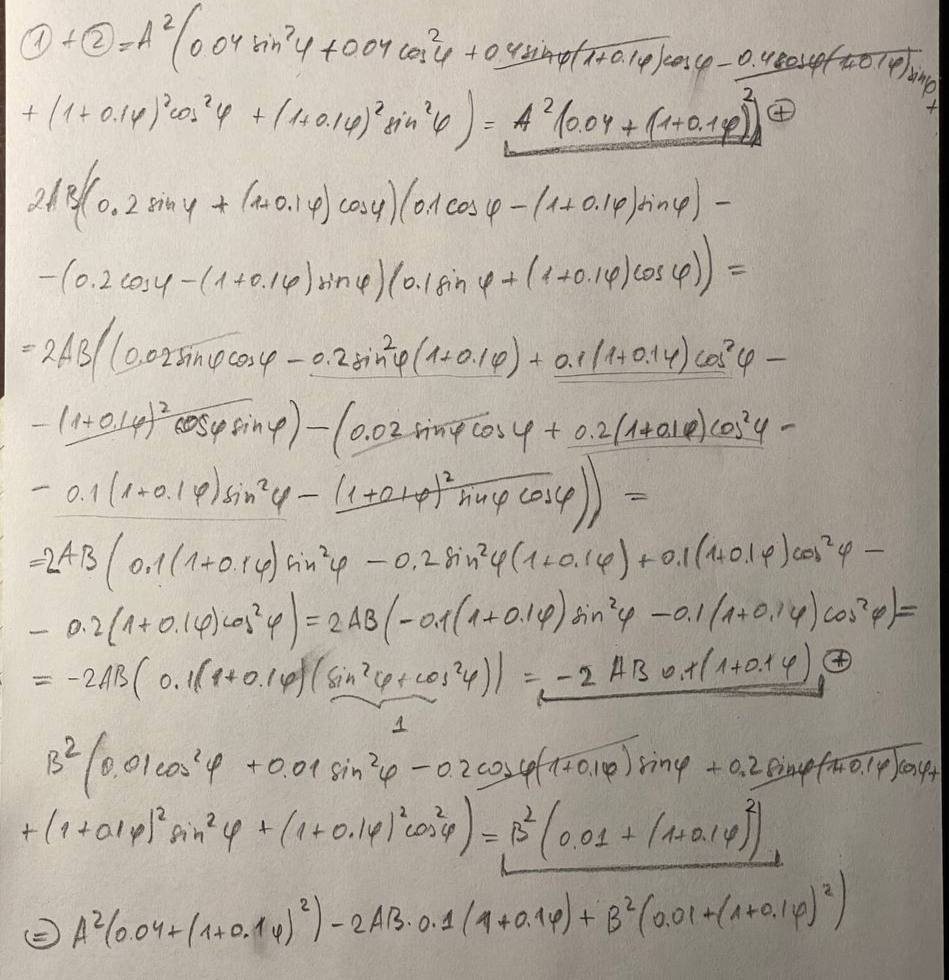 ① + ② = A²(0.04 sin²φ + 0.04 cos²φ + 0.4 sinφ(1+0.1φ)cosφ − 0.4cosφ(1+0.1φ)sinφ +
+ (1+0.1φ)²cos²φ + (1+0.1φ)² sin²φ ) = A²(0.04 + (1+0.1φ)²) ⊕
2AB((0.2 sinφ + (1+0.1φ) cosφ)(0.1cosφ − (1+0.1φ)sinφ) −
−(0.2 cosφ − (1+0.1φ) sinφ)(0.1 sinφ + (1+0.1φ)cosφ)) =
= 2AB((0.02 sinφ cosφ − 0.2 sin²φ(1+0.1φ) + 0.1(1+0.1φ) cos²φ −
− (1+0.1φ)² cosφ sinφ) − (0.02 sinφ cosφ + 0.2(1+0.1φ)cos²φ −
− 0.1(1+0.1φ)sin²φ − (1+0.1φ)² sinφ cosφ)) =
= 2AB( 0.1(1+0.1φ) sin²φ − 0.2 sin²φ(1+0.1φ) + 0.1(1+0.1φ)cos²φ −
− 0.2(1+0.1φ)cos²φ) = 2AB(−0.1(1+0.1φ) sin²φ − 0.1(1+0.1φ)cos²φ) =
= −2AB( 0.1(1+0.1φ)(sin²φ + cos²φ)) = −2 AB 0.1(1+0.1φ) ⊕
1
B²(0.01cos²φ + 0.01 sin²φ − 0.2cosφ(1+0.1φ) sinφ + 0.2 sinφ(1+0.1φ)cosφ +
+ (1+0.1φ)² sin²φ + (1+0.1φ)²cos²φ) = B²(0.01 + (1+0.1φ)²)
⊜ A²(0.04 + (1+0.1φ)²) − 2AB·0.1(1+0.1φ) + B²(0.01+(1+0.1φ)²)